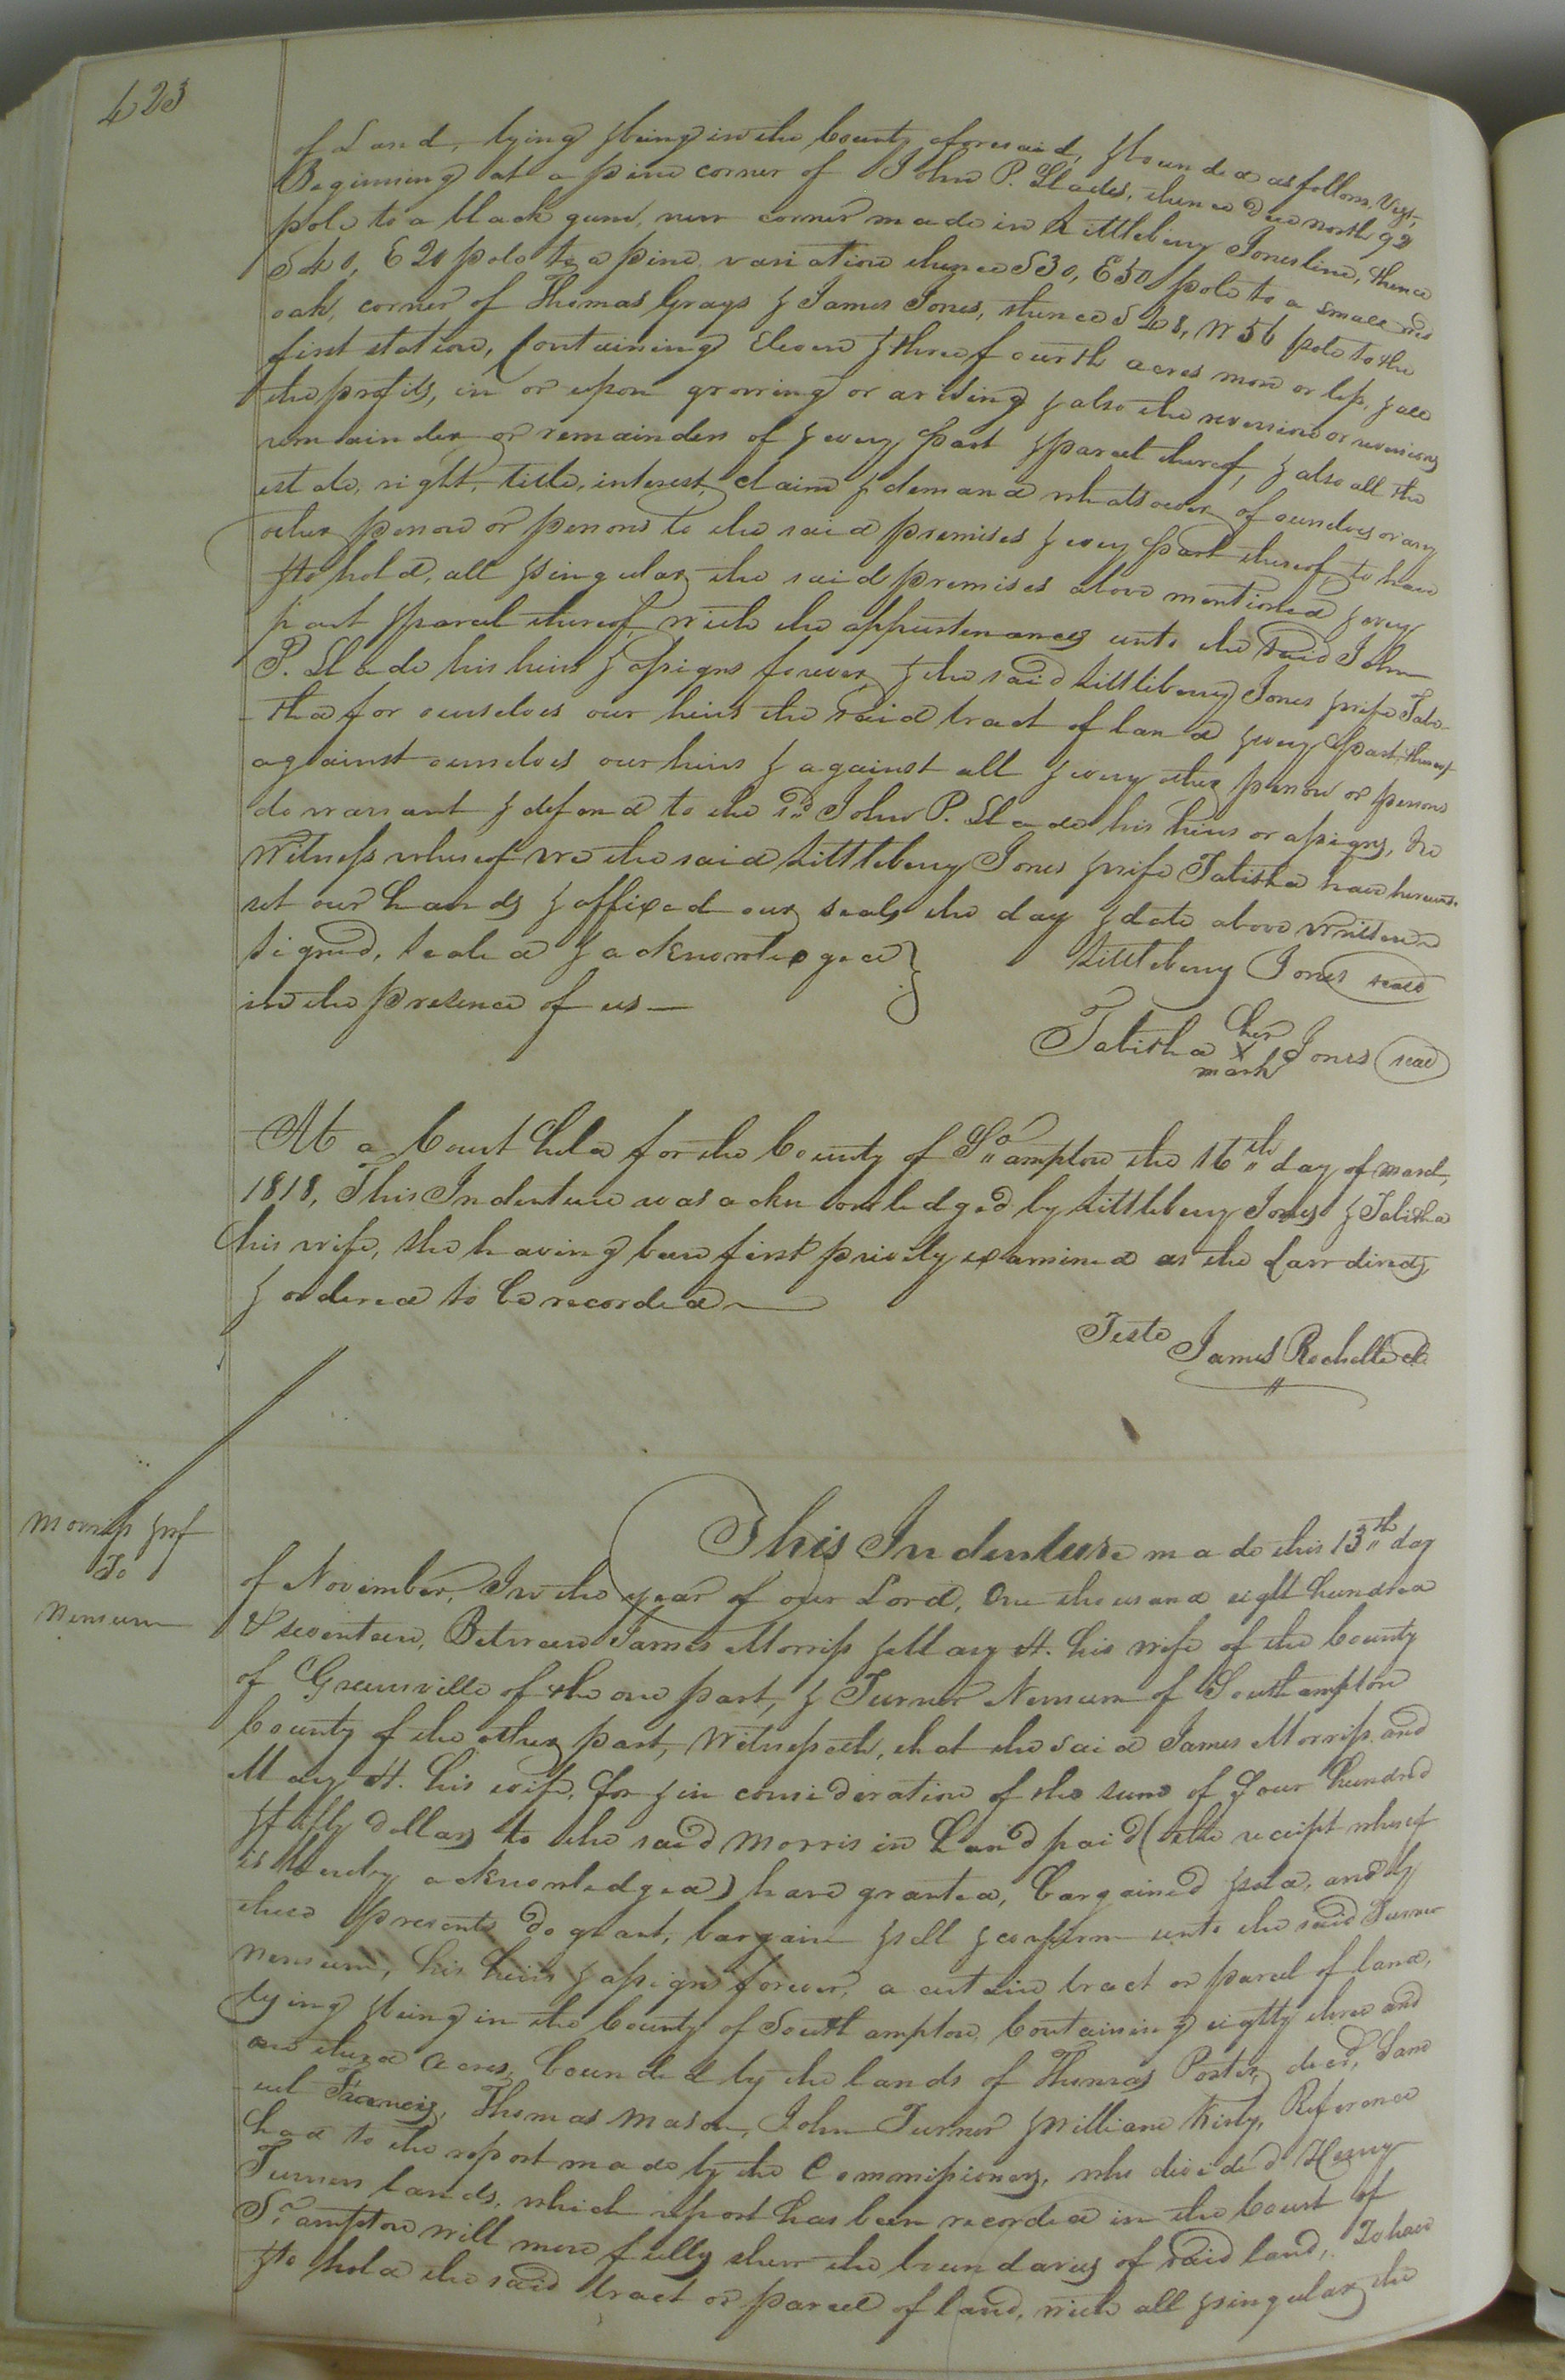 423
of Land, lying & being in the County aforesaid, & bounded as follows, Viz,
Beginning at a pine corner of John P. Slades, thence due north 92
pole to a black gum, new corner made in Littlebury Jones line, thence
S 40, E 20 pole to a pine variation thence S 30, E 50 pole to a small red
oak, corner of Thomas Grays & James Jones, thence S 48, W 56 pole to the
first station, Containing Eleven & three fourth acres more or less, & all
the profits, in or upon growing or arising & also the reversion or reversions
remainder or remainders of & every part & parcel thereof, & also all the
estate, right, title, interest, claim & demand whatsoever of ourselves or any
other person or persons to the said premises & every part thereof, to have
& to hold, all & singular the said premises above mentioned & every
part & parcel thereof with the appurtenances unto the said John
P. Slade his heirs & assigns forever, & the said Littlebury Jones & wife Tabi-
-tha for ourselves our heirs the said tract of land & every part thereof
against ourselves our heirs & against all & every other person or persons
do warrant & defend to the sd. John P. Slade his heirs or assigns, In
Witness whereof we the said Littlebury Jones & wife Tabitha have hereunto
set our hands & affixed our seals the day & date above Written
Signed, Sealed & acknowledged }
Littlebury Jones seal
in the presence of us —
Tabitha her X mark Jones seal
At a Court held for the County of So,, ampton the 16th,, day of march,
1818, This Indenture was acknowledged by Littlebury Jones & Tabitha
his wife, she having been first privily examined as the Law directs,
& ordered to be recorded —
Teste
James Rochelle cl
Morriss & wf
To
Newsum
This Indenture made this 13th,, day
of November, In the year of our Lord, One thousand eight hundred
& seventeen, Between James Morriss & Mary H. his wife of the County
of Greensville of the one part, & Turner Newsum of Southampton
County of the other part, Witnesseth, that the said James Morriss and
Mary H. his wife, for & in consideration of the sum of four hundred
& fifty dollars to the said Morris in hand paid (the receipt whereof
is hereby acknowledged) have granted, bargained & sold, and by
these presents do grant, bargain & sell & confirm unto the said Turner
Newsum, his heirs & assigns forever, a certain tract or parcel of land,
lying & being in the County of Southampton, Containing eighty three and
one third acres, bounded by the lands of Thomas Porter, decd, Sam
uel Francis, Thomas Mason, John Turner & William Kirby, Reference
had to the report made by the Commissioners, who divided Henry
Turners lands, which report has been recorded in the Court of
So, ampton will more fully shew the boundaries of said land, To have
& to hold the said tract or parcel of land, with all & singular the